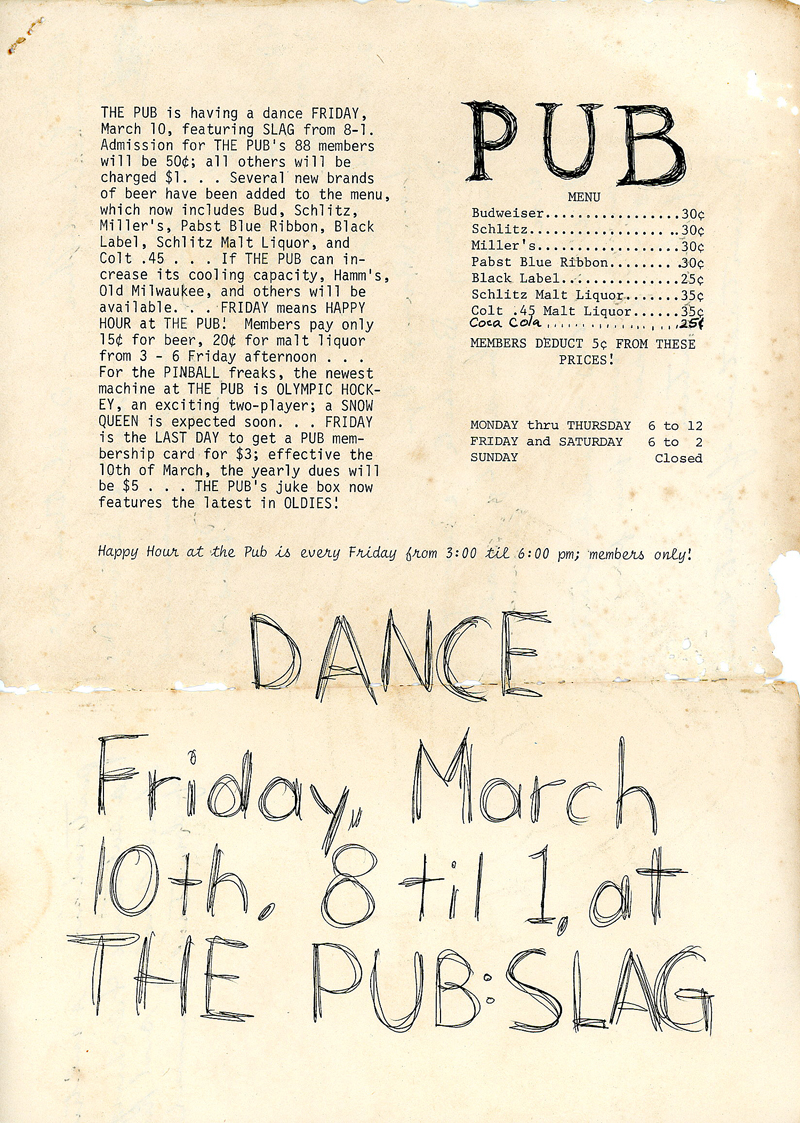 THE PUB is having a dance FRIDAY,
March 10, featuring SLAG from 8-1.
Admission for THE PUB's 88 members
will be 50¢; all others will be
charged $1. . . Several new brands
of beer have been added to the menu,
which now includes Bud, Schlitz,
Miller's, Pabst Blue Ribbon, Black
Label, Schlitz Malt Liquor, and
Colt .45 . . . If THE PUB can in-
crease its cooling capacity, Hamm's,
Old Milwaukee, and others will be
available. . . FRIDAY means HAPPY
HOUR at THE PUB! Members pay only
15¢ for beer, 20¢ for malt liquor
from 3 - 6 Friday afternoon . . .
For the PINBALL freaks, the newest
machine at THE PUB is OLYMPIC HOCK-
EY, an exciting two-player; a SNOW
QUEEN is expected soon. . . FRIDAY
is the LAST DAY to get a PUB mem-
bership card for $3; effective the
10th of March, the yearly dues will
be $5 . . . THE PUB's juke box now
features the latest in OLDIES!
PUB
MENU
Budweiser.................30¢
Schlitz...................30¢
Miller's..................30¢
Pabst Blue Ribbon.........30¢
Black Label...............25¢
Schlitz Malt Liquor.......35¢
Colt .45 Malt Liquor......35¢
Coca Cola.................25¢
MEMBERS DEDUCT 5¢ FROM THESE
PRICES!
MONDAY thru THURSDAY 6 to 12
FRIDAY and SATURDAY 6 to 2
SUNDAY Closed
Happy Hour at the Pub is every Friday from 3:00 til 6:00 pm; members only!
DANCE
Friday, March
10th, 8 til 1, at
THE PUB: SLAG